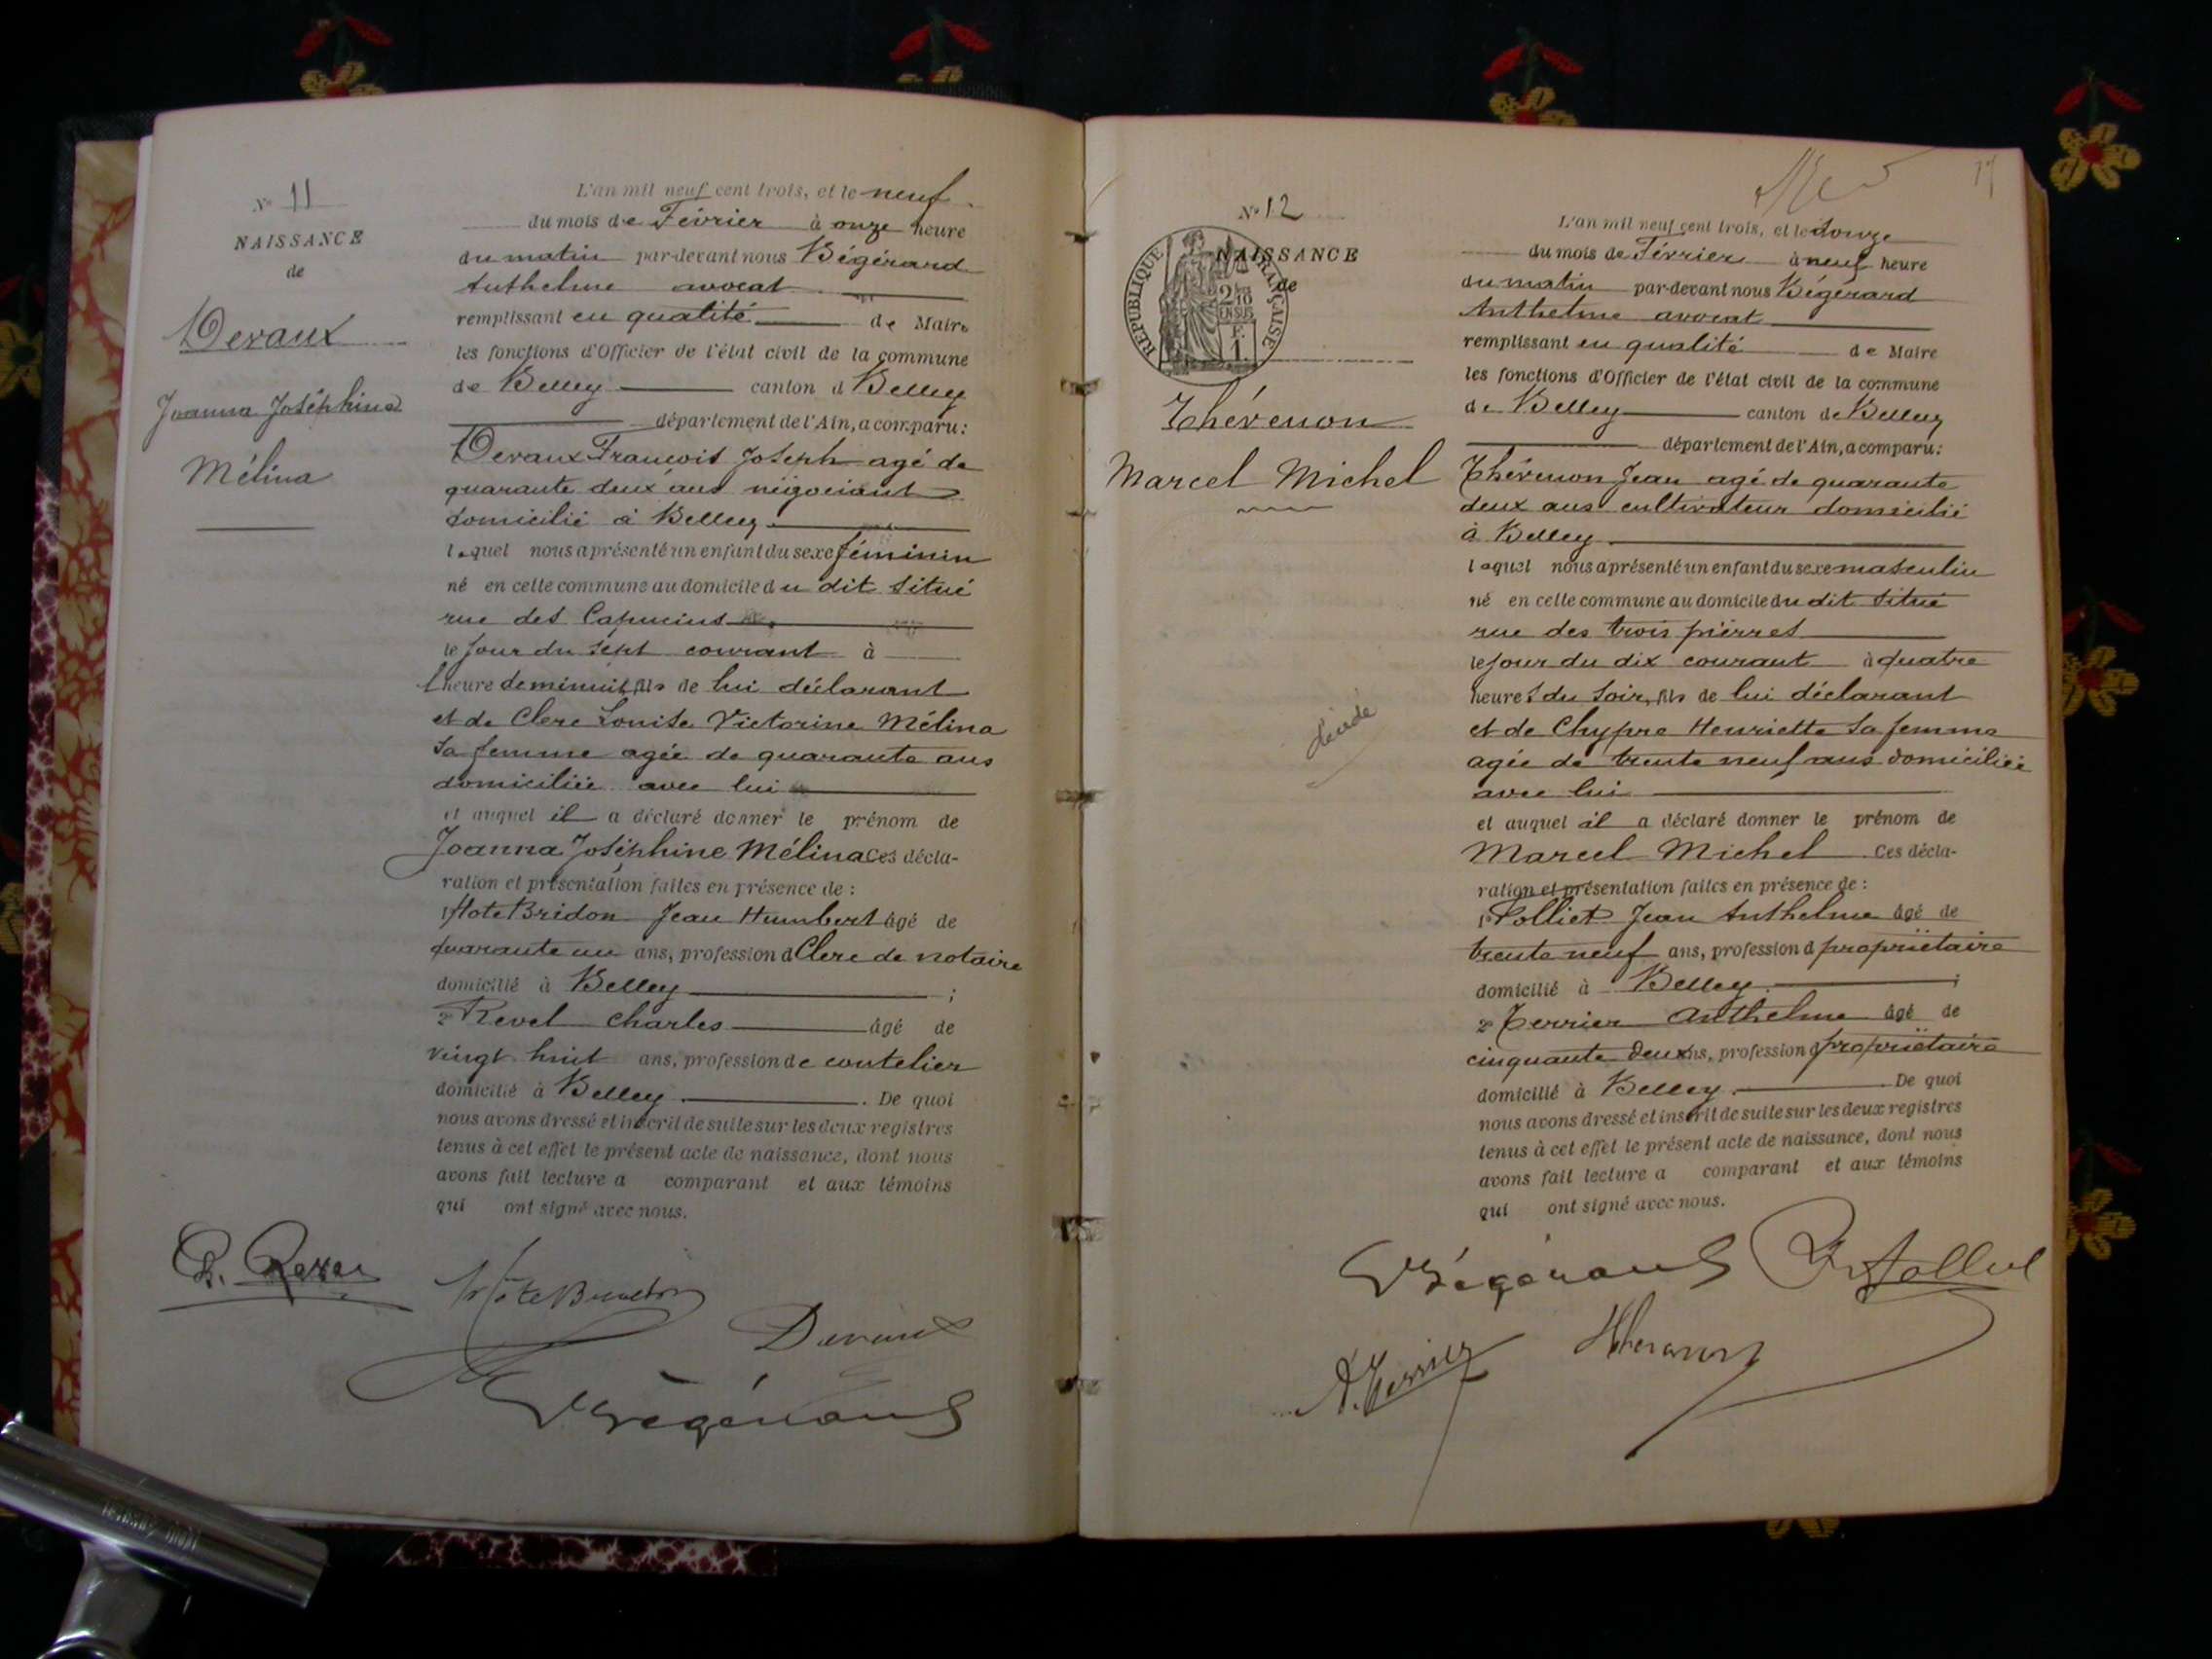 N° 11
NAISSANCE
de
Devaux
Joanna Joséphine
Mélina
L'an mil neuf cent trois, et le neuf
du mois de Février à onze heure
du matin par-devant nous Bégérard
Anthelme avocat
remplissant en qualité de Maire
les fonctions d'Officier de l'état civil de la commune
de Belley canton d Belley
département de l'Ain, a comparu:
Devaux François Joseph agé de
quarante deux ans négociant
domicilié à Belley
lequel nous a présenté un enfant du sexe féminin
né en cette commune au domicile du dit situé
rue des Capucins
le jour du sept courant à
l heure de minuit, fils de lui déclarant
et de Clerc Louise Victorine Mélina
sa femme agée de quarante ans
domiciliée avec lui
et auquel il a déclaré donner le prénom de
Joanna Joséphine Mélina Ces décla-
ration et présentation faites en présence de :
1° Hote Bridon Jean Humbert âgé de
quarante un ans, profession d Clerc de notaire
domicilié à Belley ;
2° Revel Charles âgé de
vingt huit ans, profession de coutelier
domicilié à Belley . De quoi
nous avons dressé et inscrit de suite sur les deux registres
tenus à cet effet le présent acte de naissance, dont nous
avons fait lecture a comparant et aux témoins
qui ont signé avec nous.
Devaux
Bégérard
17
N° 12
NAISSANCE
de
REPUBLIQUE FRANÇAISE
2/10
EN SUS
F.
1.
Thévenon
Marcel Michel
L'an mil neuf cent trois, et le douze
du mois de Février à neuf heure
du matin par-devant nous Bégérard
Anthelme avocat
remplissant en qualité de Maire
les fonctions d'Officier de l'état civil de la commune
de Belley canton de Belley
département de l'Ain, a comparu:
Thévenon Jean agé de quarante
deux ans cultivateur domicilié
à Belley
lequel nous a présenté un enfant du sexe masculin
né en cette commune au domicile du dit situé
rue des trois pierres
le jour du dix courant à quatre
heures du soir, fils de lui déclarant
et de Chypre Henriette sa femme
agée de trente neuf ans domiciliée
avec lui
et auquel il a déclaré donner le prénom de
Marcel Michel Ces décla-
ration et présentation faites en présence de :
1° Folliet Jean Anthelme âgé de
trente neuf ans, profession d propriétaire
domicilié à Belley ;
2° Terrier Anthelme âgé de
cinquante deux ans, profession d propriétaire
domicilié à Belley. De quoi
nous avons dressé et inscrit de suite sur les deux registres
tenus à cet effet le présent acte de naissance, dont nous
avons fait lecture a comparant et aux témoins
qui ont signé avec nous.
Bégérard
A. Terrier